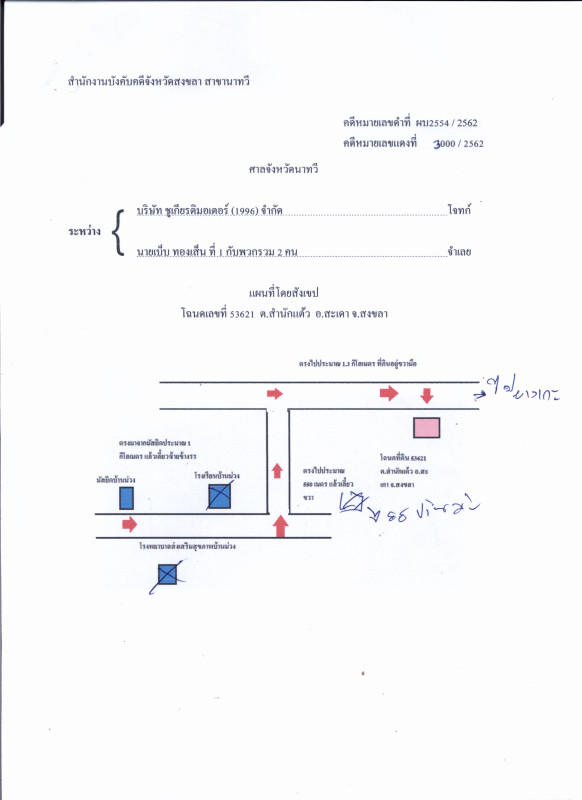 สำนักงานบังคับคดีจังหวัดสงขลา สาขานาทวี
คดีหมายเลขดำที่ ผบ2554 / 2562
คดีหมายเลขแดงที่ 3000 / 2562
ศาลจังหวัดนาทวี
บริษัท ชูเกียรติมอเตอร์ (1996) จำกัด โจทก์
ระหว่าง
นายเบ็บ ทองเส็น ที่ 1 กับพวกรวม 2 คน จำเลย
แผนที่โดยสังเขป
โฉนดเลขที่ 53621 ต.สำนักแต้ว อ.สะเดา จ.สงขลา
ตรงไปประมาณ 1.3 กิโลเมตร ที่ดินอยู่ขวามือ
ตรงมาจากมัสยิดประมาณ 1
กิโลเมตร แล้วเลี้ยวซ้ายข้างรร
มัสยิดบ้านม่วง
โรงเรียนบ้านม่วง
ตรงไปประมาณ
800 เมตร แล้วเลี้ยว
ขวา
โฉนดที่ดิน 53621
ต.สำนักแต้ว อ.สะ
เดา จ.สงขลา
โรงพยาบาลส่งเสริมสุขภาพบ้านม่วง